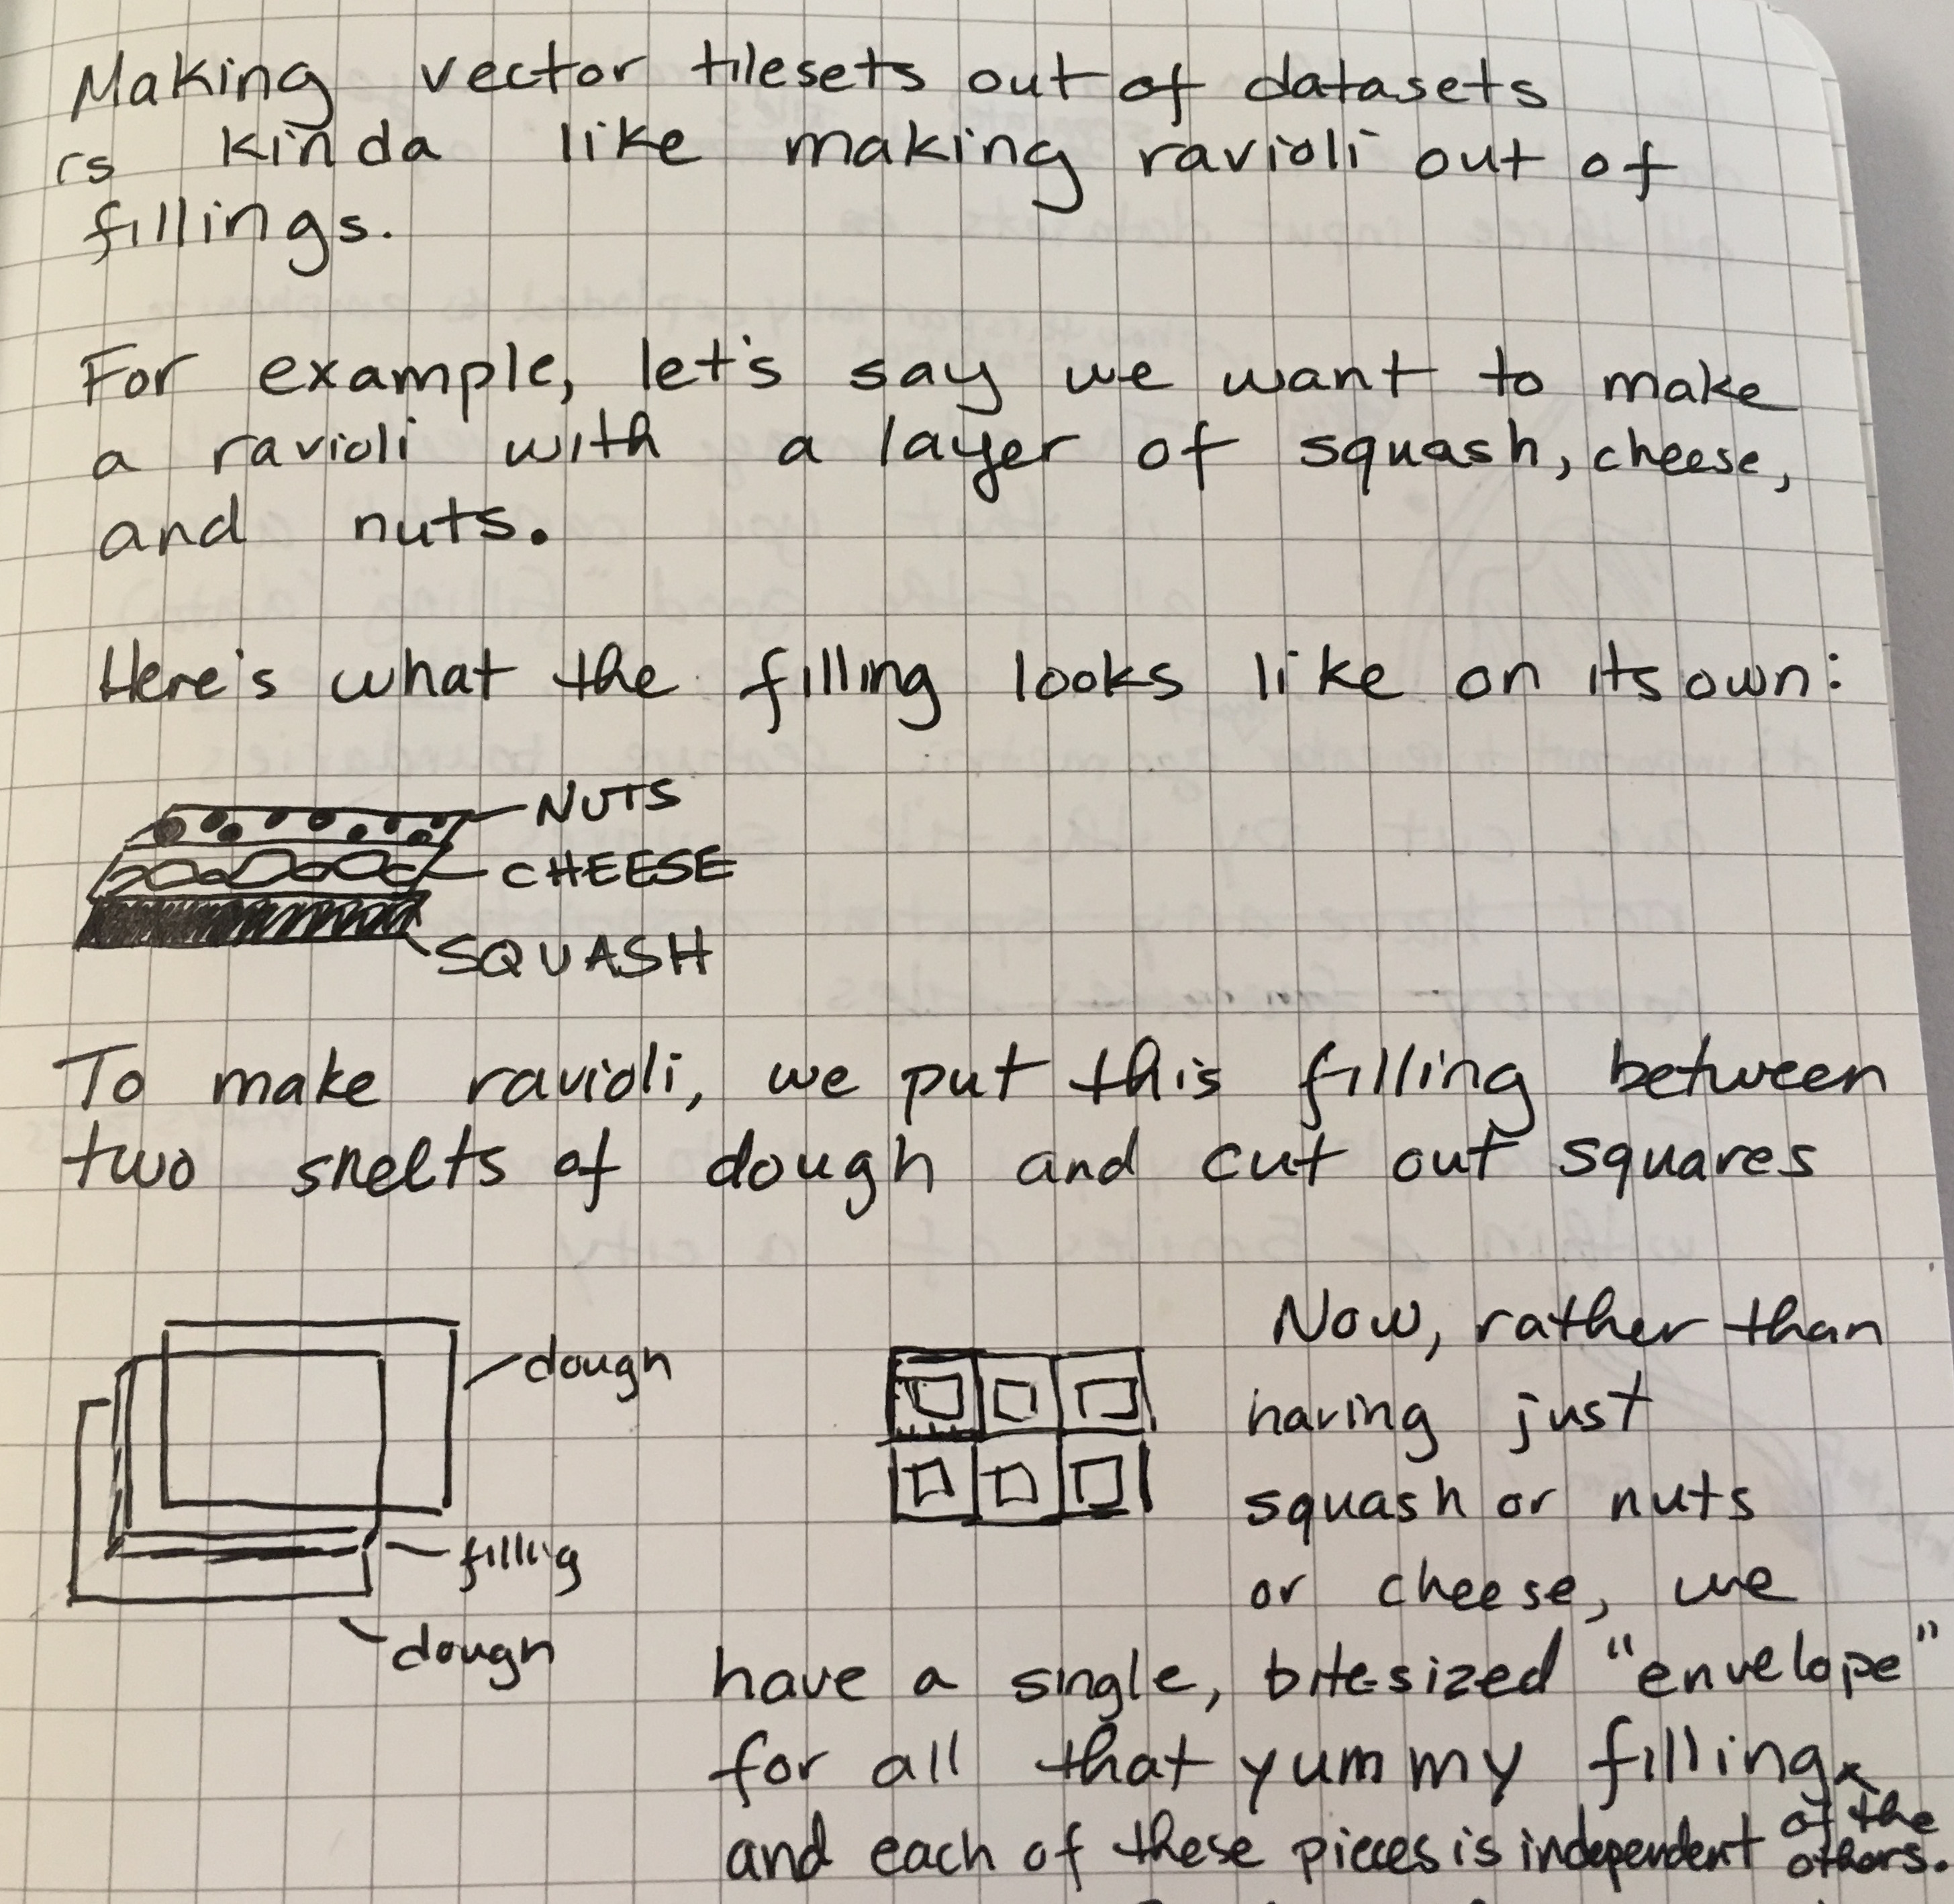 Making vector tilesets out of datasets
is kinda like making ravioli out of
fillings.
For example, let's say we want to make
a ravioli with a layer of squash, cheese,
and nuts.
Here's what the filling looks like on its own:
NUTS
CHEESE
SQUASH
To make ravioli, we put this filling between
two sheets of dough and cut out squares
dough
filling
dough
Now, rather than
having just
squash or nuts
or cheese, we
have a single, bitesized "envelope"
for all that yummy filling
and each of these pieces is independent of the
others.